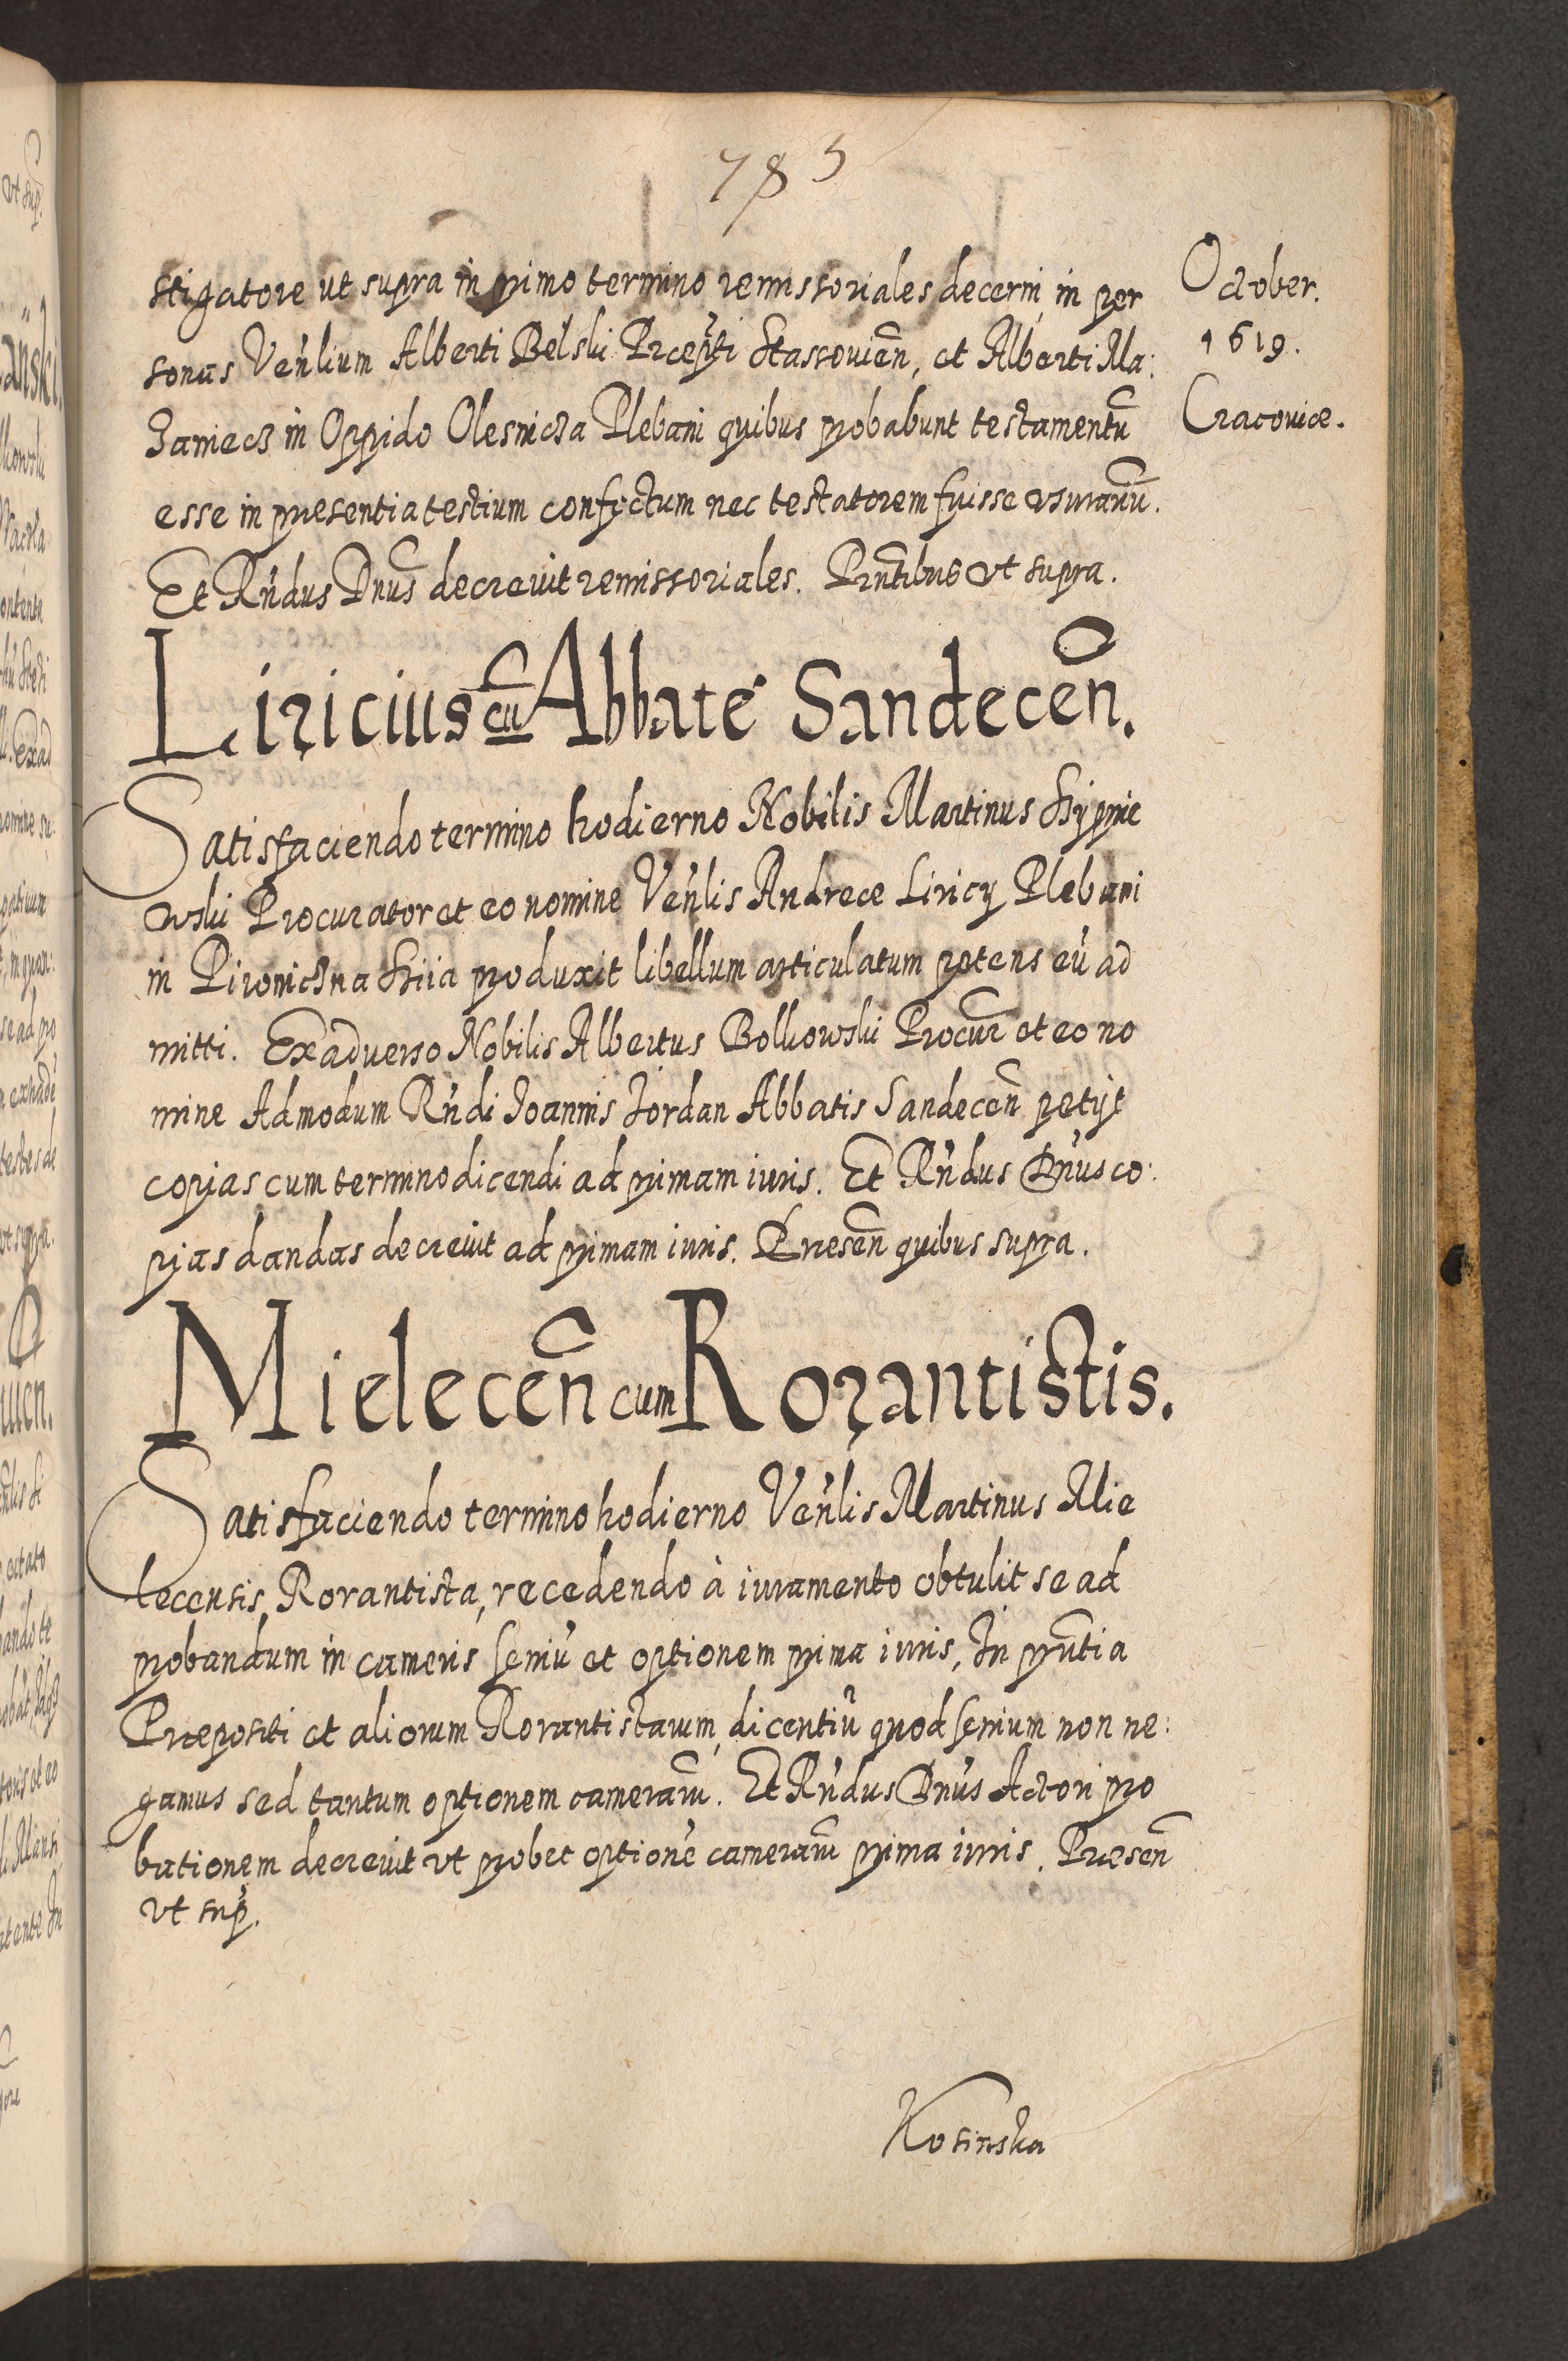 783
October.
1619.
Cracoviæ.
stigatore ut supra in primo termino remissoriales decerni, in per
sonas Ven̄lium Alberti Belski Præpti Stassovien̄, et Alberti Ma:
zaniecz in Oppido Olesnicza Plebani quibus probabunt testamentū
esse in presentia testium confectum nec testatorem fuisse usurariū.
Et Rn̄dus Dnūs decrevit remissoriales. Pnt̄ibus ut supra.
Liricius cū Abbate Sandecen̄.
Satisfaciendo termino hodierno Nobilis Martinus
owski Procurator et eo nomine Ven̄lis Andreæ Liricy Plebani
in Piwniczna produxit libellum articulatum petens eū ad
mitti. Exadverso Nobilis Albertus Bolkowski Procur̄ et eo no
mine Admodum Rn̄di Joannis Jordan Abbatis Sandecen̄ petijt
copias cum termino dicendi ad primam iuris. Et Rn̄dus Dn̄us co:
pias dandas decrevit ad primam iuris. Præsen̄ quibus supra.
Mielecen̄ cum Rorantistis.
Satisfaciendo termino hodierno Ven̄lis Martinus Mie
lecensis, Rorantista, recedendo à iuramento obtulit se ad
probandum in cameris seniū et optionem prima iuris, In pn̄tia
Præpositi et aliorum Rorantistarum, dicentiū quod senium non ne:
gamus sed tantum optionem camerarū. Et Rn̄dus Dn̄us Actori pro
bationem decrevit ut probet optionē camerarū prima iuris. Præsen̄
ut sup̄.
Kosinska